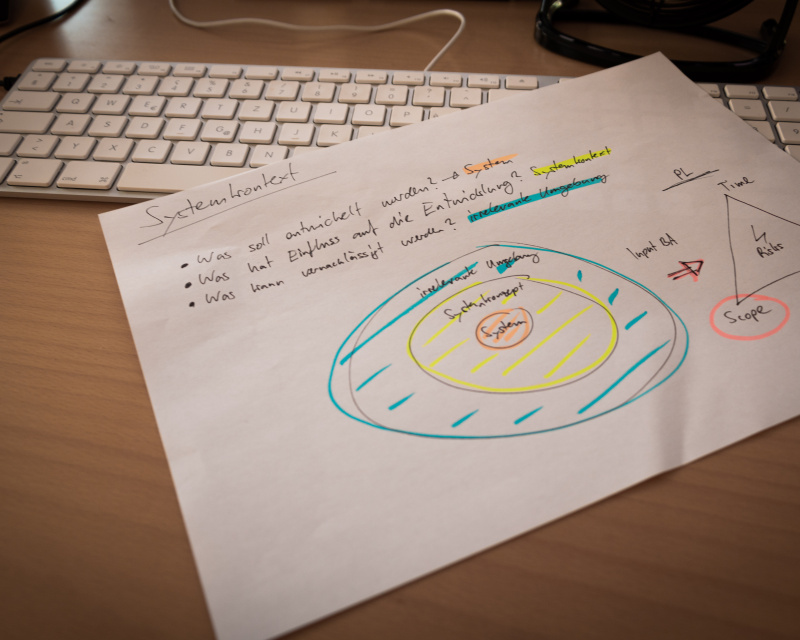 Systemkontext
• Was soll entwickelt werden? → System
• Was hat Einfluss auf die Entwicklung? Systemkontext
• Was kann vernachlässigt werden? irrelevante Umgebung
irrelevante Umgebung
Systemkonzept
System
Input BA
PL
Time
Risks
Scope